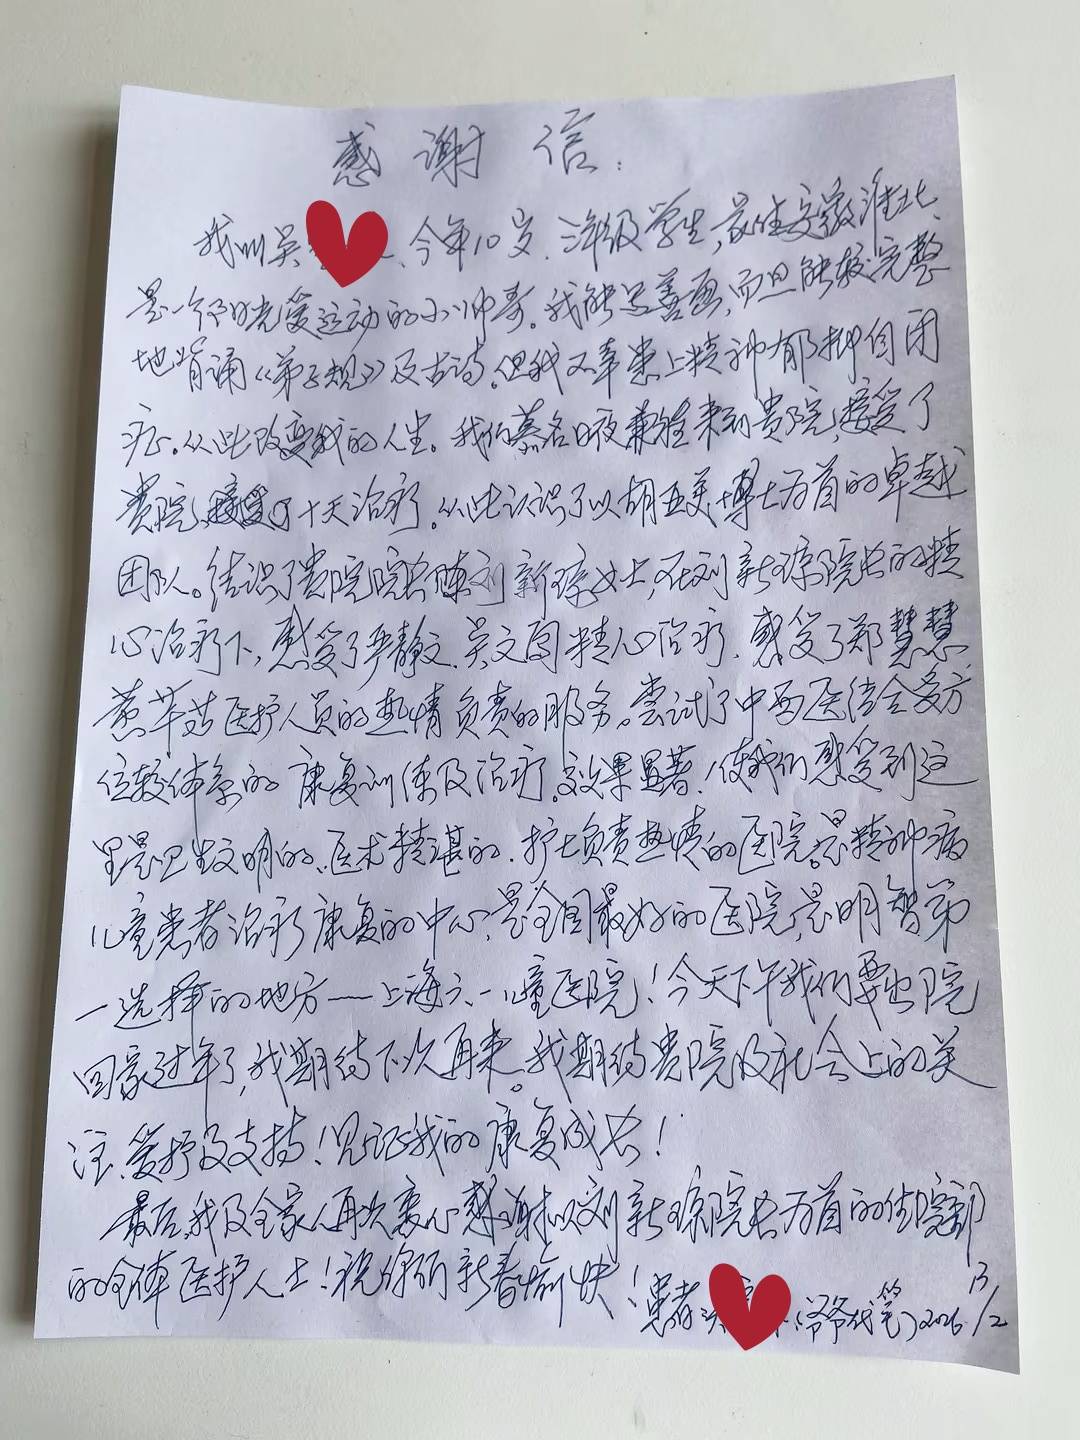 感谢信:
我叫吴、今年10岁、三年级学生,家住安徽淮北、
是一个阳光爱运动的小帅哥。我能写善画,而且能较完整
地背诵《弟子规》及古诗。但我不幸患上精神郁抑自闭
症。从此改变我的人生。我们慕名日夜兼程来到贵院,接受了
贵院、接受了十天治疗。从此认识了以胡亚美博士为首的卓越
团队。结识了贵院院长陈刘新琼女士,在刘新琼院长的精
心治疗下,感受了严静文、吴文图精心治疗、感受了郑慧慧、
黄华医护人员的热情负责的服务。尝试了中西医结合多方
位较体系的康复训练及治疗。效果显著!使我们感受到这
里是卫生文明的、医术精湛的、护士负责热情的医院。是精神病
儿童患者治疗康复的中心,是全国最好的医院,是明智第
一选择的地方——上海六一儿童医院!今天下午我们要出院
回家过年了,我期待下次再来。我期待贵院及社会上的关
注、爱护及支持!见证我的康复成长!
最后,我及全家人再次衷心感谢以刘新琼院长为首的住院部
的全体医护人士!祝你们新春愉快!
患者(爷爷代笔)2026.13/2